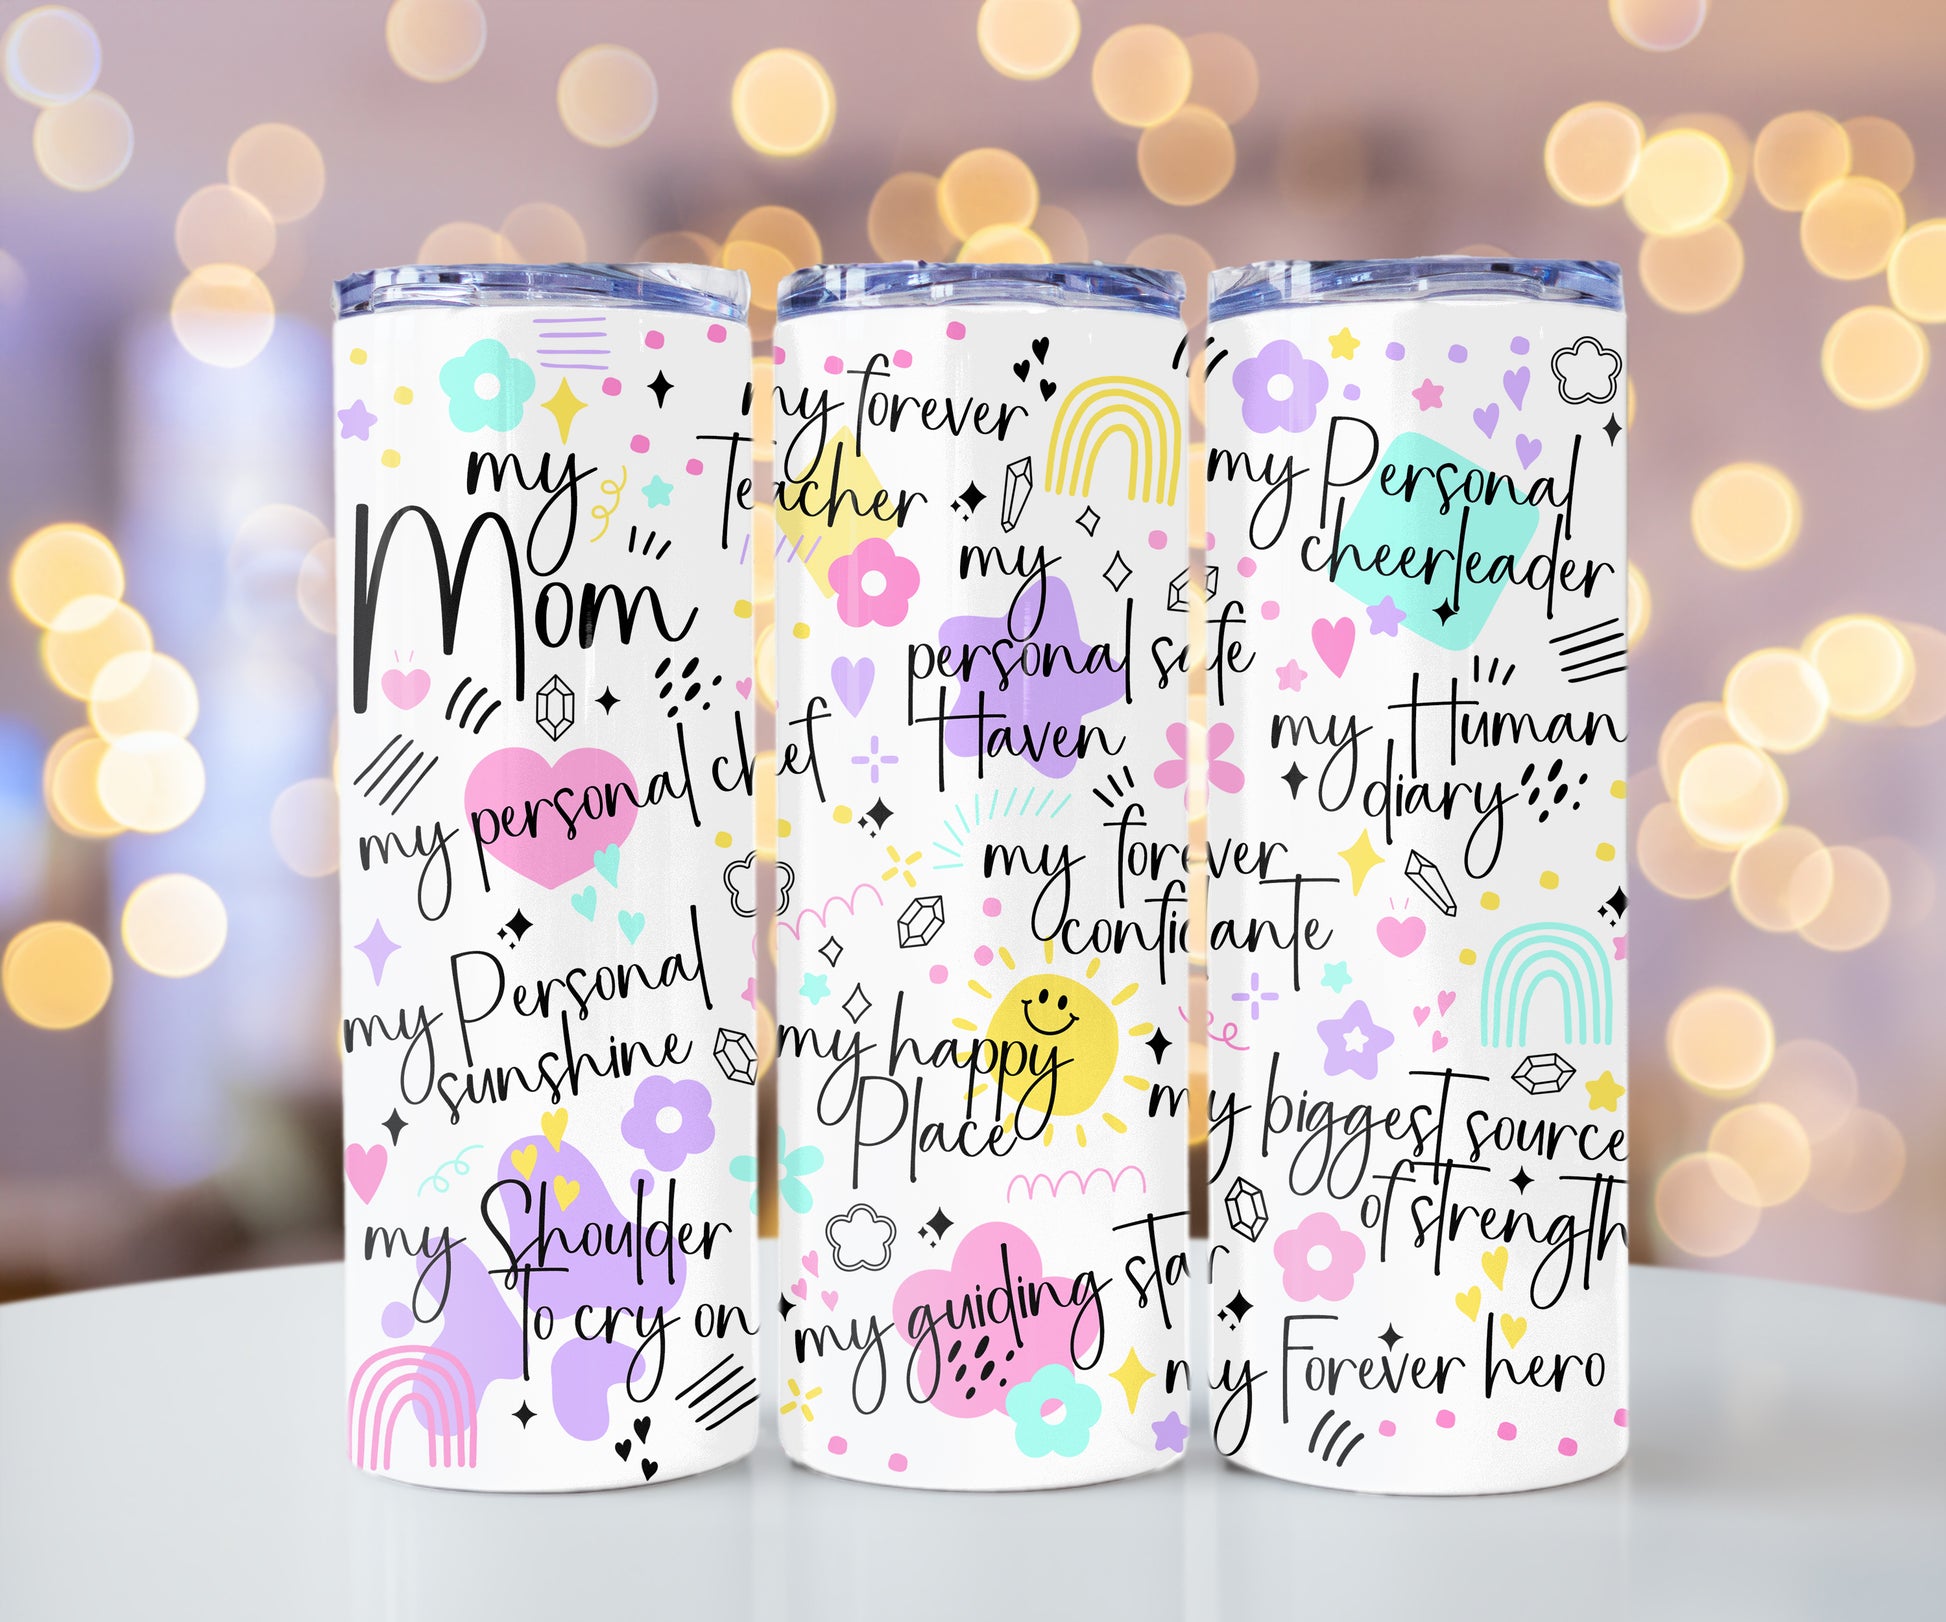 my
Mom
my personal chef
my Personal
sunshine
my Shoulder
To cry on
my forever
Teacher
my
personal safe
Haven
my forever
confidante
my happy
Place
my guiding star
my Personal
cheerleader
my Human
diary
my biggest source
of strength
my Forever hero